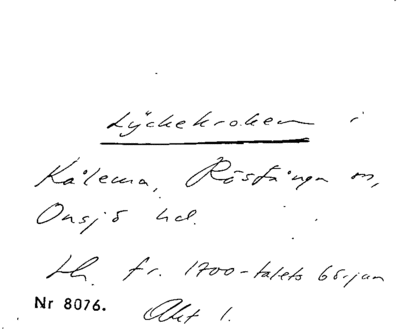 Lyckekroken i
Kålema, Rösfånga sn,
Onsjö hd.
Lh. fr. 1700-talets början
Nr 8076. Akt 1.